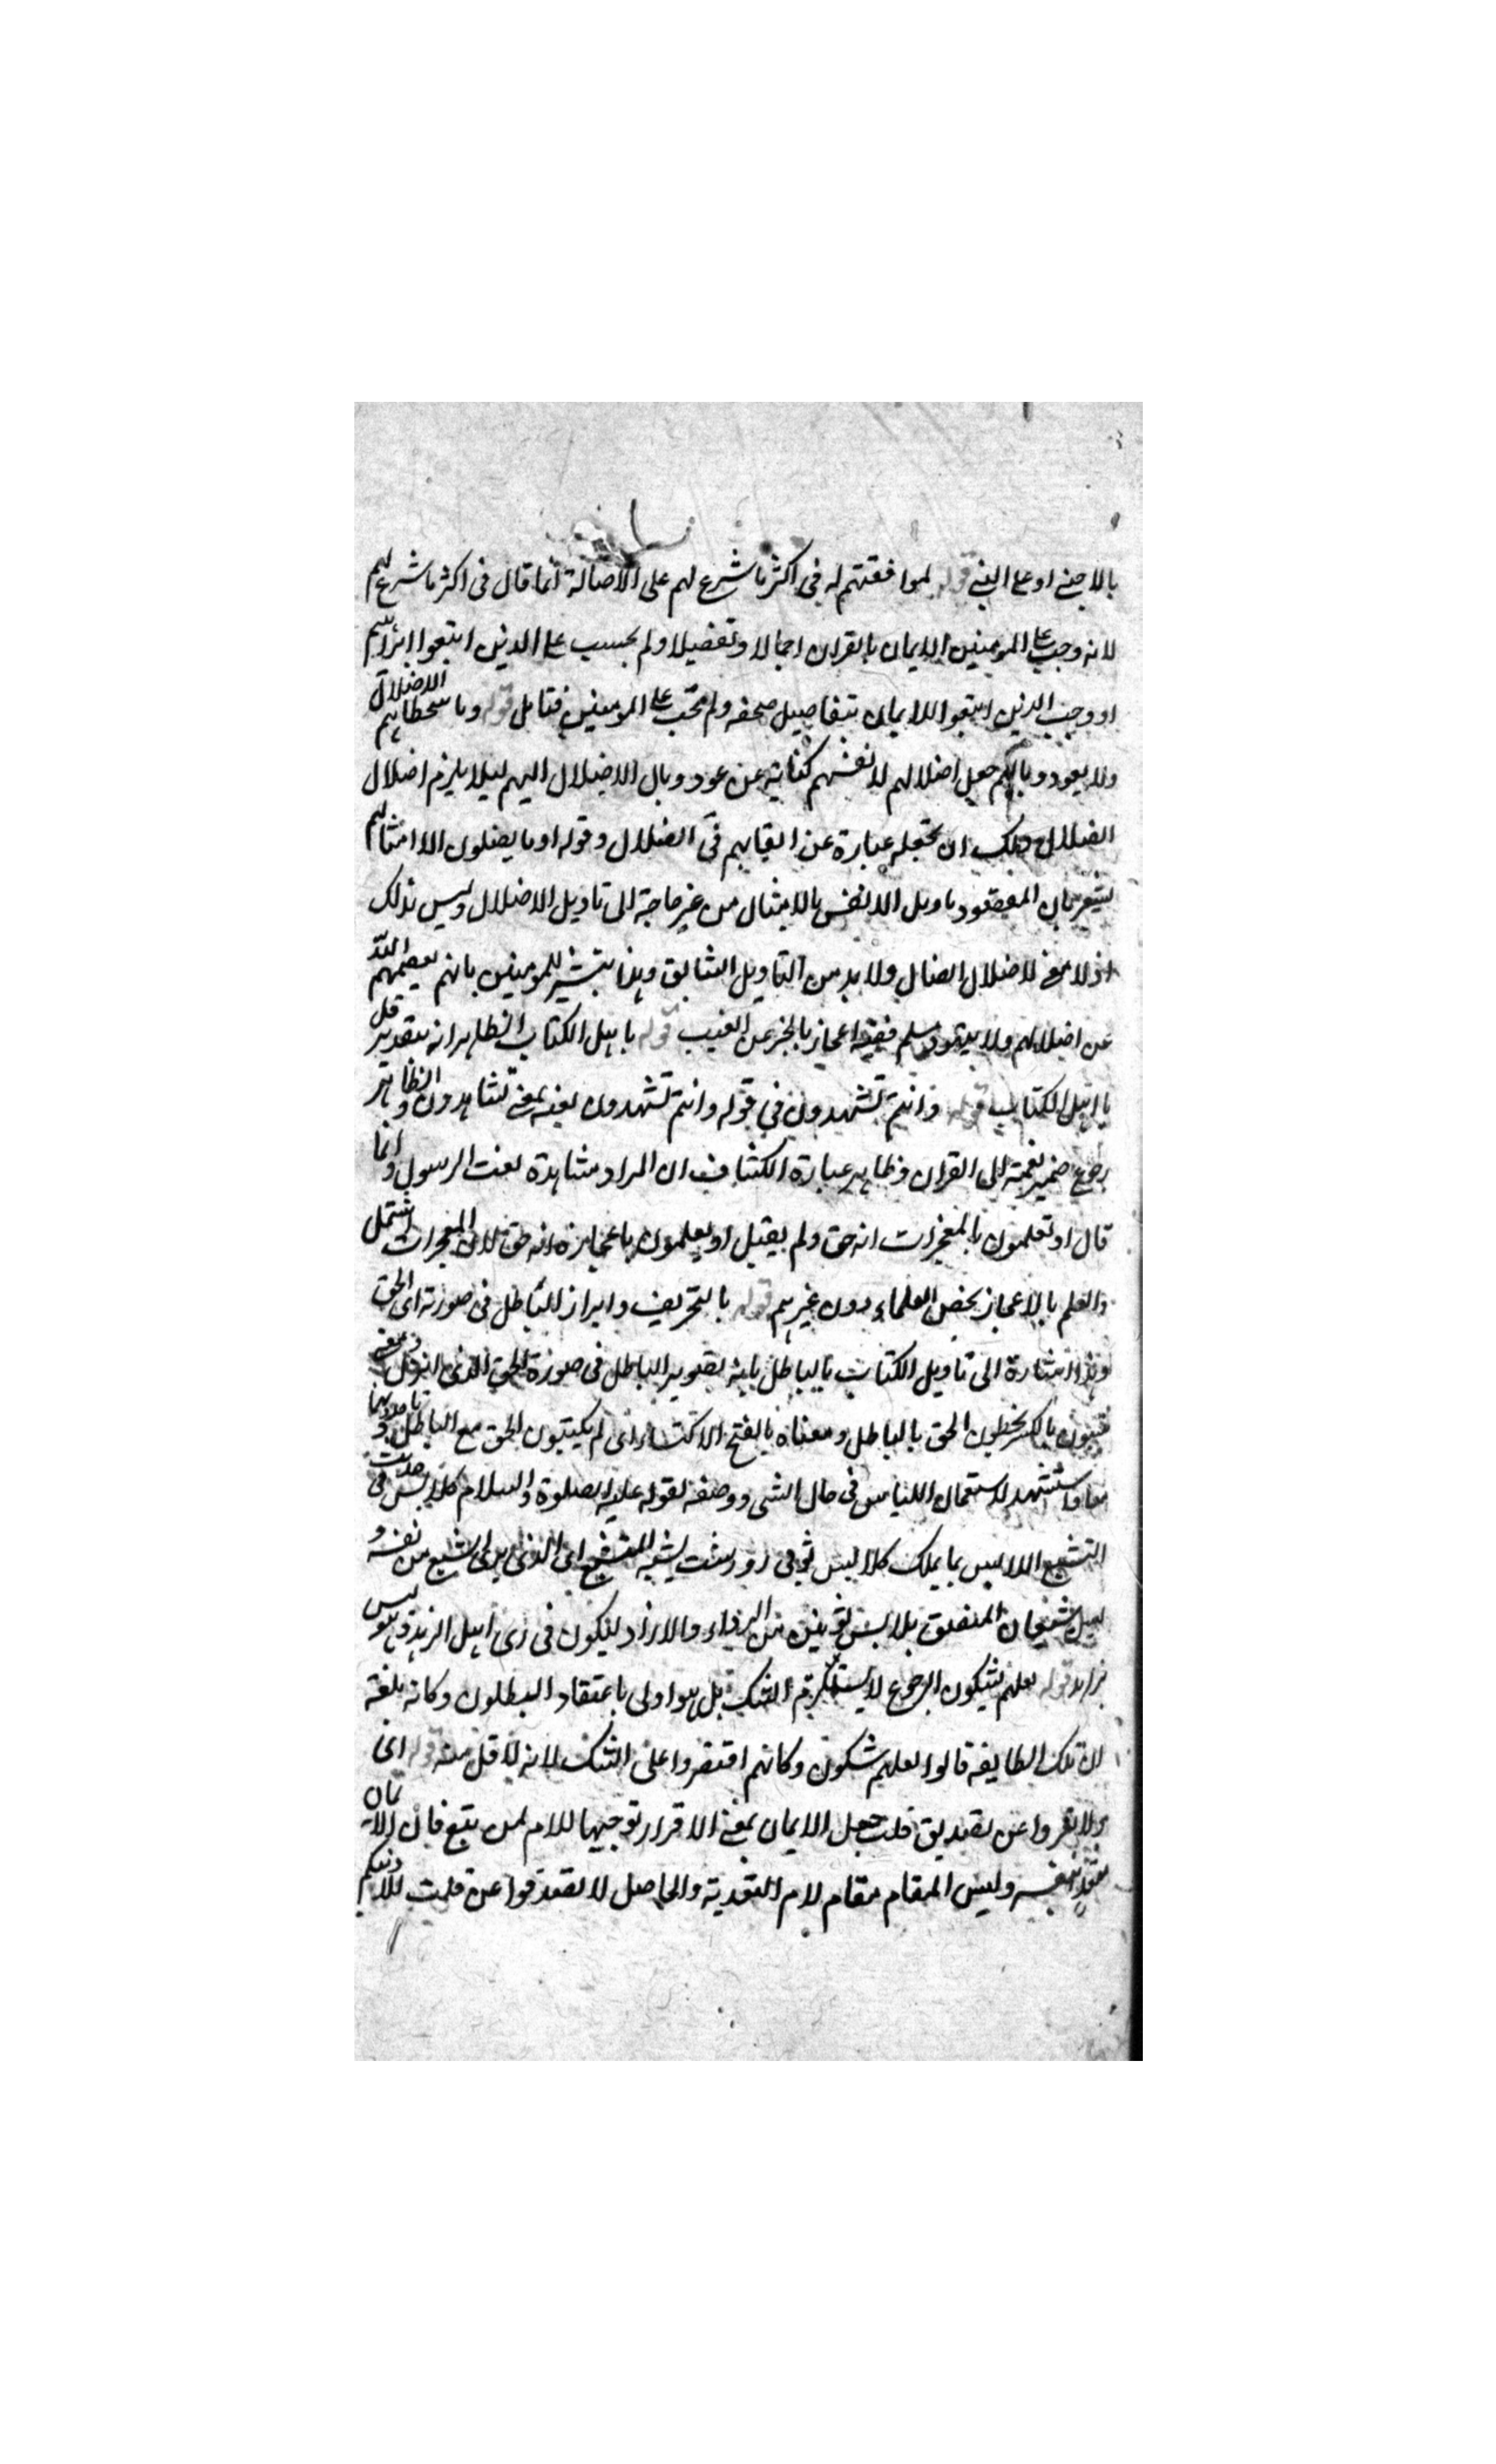 بالاجنے او علی النبے قوله لموافقتهم له فی اکثر ما شرع لهم علی الاصالة انما قال فی اکثر ما شرع لهم
لانه وجب علی المومنین الایمان بالقران اجمالا وتفصیلا ولم یحسب علی الذین اتبعوا ابراهیم
او وجب الذین اتبعوا الایمان بتفاصیل صحفه ولم یجب علی المومنین فتامل قوله وما یتخطاهم الاضلال
ولا یعود وباله جعل اضلالهم لانفسهم کنایة عن عود وبال الاضلال الیهم لیلا یلزم اضلال
الضلال ولک ان تجعله عبارة عن القایهم فی الضلال وقوله او ما یضلون الا امثالهم
یشعر بان المقصود تاویل الانفس بالامثال من غیر حاجة الی تاویل الاضلال ولیس کذلک
اذ لا معنے لاضلال الضال ولا بد من التاویل السابق وهذا تبشیر للمومنین بانهم یعصمهم الله
عن اضلالهم ولا یتهود مسلم ففیه اعجاز بالخبر عن الغیب قوله یا اهل الکتاب الظاهر انه بتقدیر قل
یا اهل الکتاب قوله وانتم تشهدون فی قوله وانتم تشهدون نعته بمعنے تشاهدون والظاهر
رجوع ضمیر نعته الی القران وظاهر عبارة الکشاف ان المراد مشاهدة نعت الرسول وانما
قال او تعلمون بالمعجزات انه حق ولم یقل او یعلمون باعجازه انه حق لان المعجزات اشمل
والعلم بالاعجاز یخص العلماء دون غیرهم قوله بالتحریف وابراز الباطل فی صورته ای الحق
وهذا اشارة الی تاویل الکتاب بالباطل بانه تصویر الباطل فی صورة الحق الذی انزل
بالکسر یخلطون الحق بالباطل ومعناه بالفتح الاکتساء ای لم یکتسون الحق مع الباطل
معا واستشهد لاستعمال اللباس فی حال الشی ووصفه لقوله علیه الصلوة والسلام کلابس فی حدیث
المتشبع بما لا یملک کلابس ثوبی زور یشبه المتشبع ای الذی یری الشبع من نفسه و
لیس شبعان المنفق بلابس ثوبین من الرداء والازار لیکون فی زی اهل الزهد وهو لیس
بزاهد قوله لعلهم یشکون الرجوع لا یستلزم الشک بل هوا ولی باعتقاد البطلون وکانه بلغه
ان تلک الطایفة قالوا لعلهم یشکون وکانهم اقتصروا علی الشک لانه لا اقل منه قوله ای
ولا تقروا عن تصدیق قلب جعل الایمان بمعنے الاقرار توجیها للام لمن تبع فان الایمان
متعد بنفسه ولیس المقام مقام لام التقویة والحاصل لا تصدقوا عن قلب الا لمن تبع دینکم